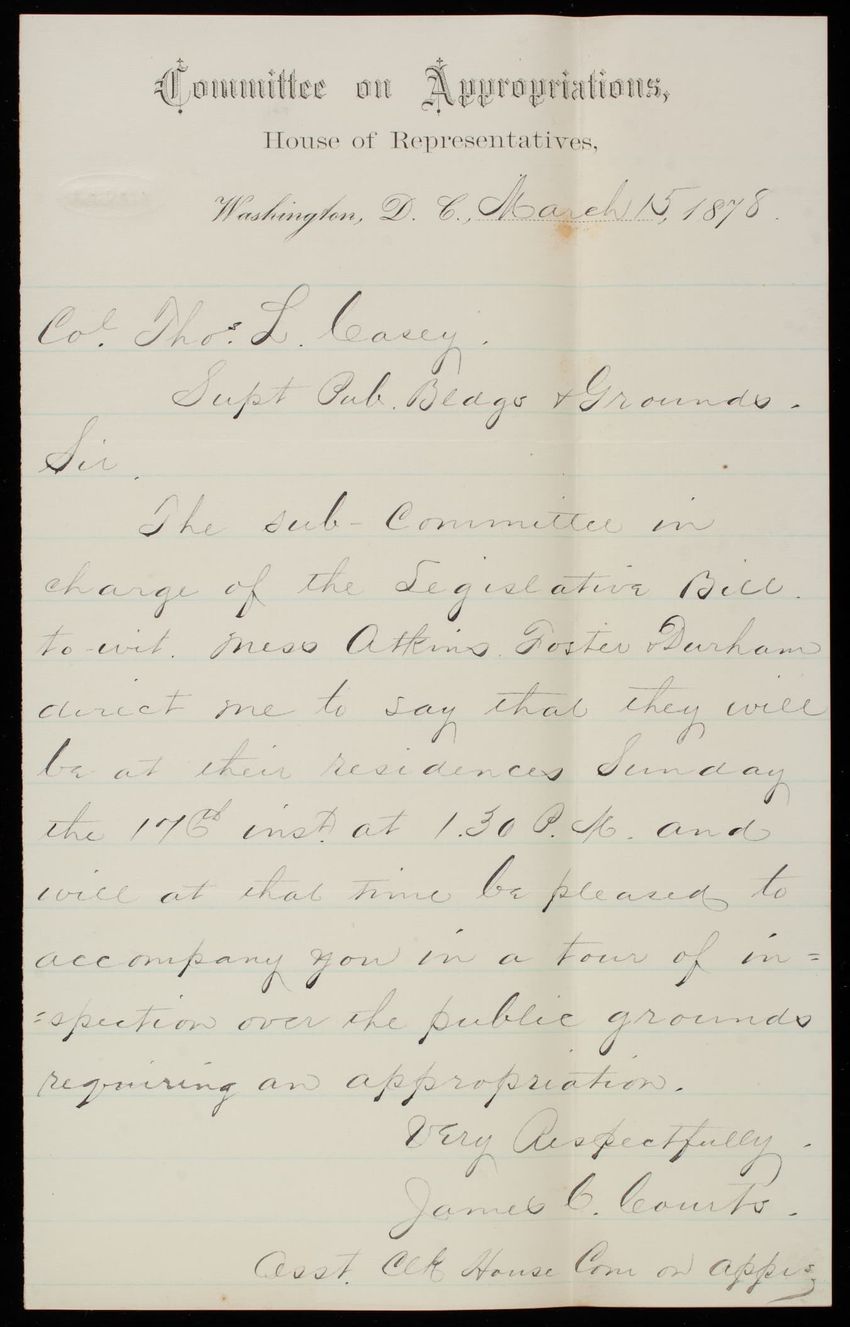 Committee on Appropriations,
House of Representatives,
Washington, D. C., March 15, 1878.
Col. Thos. L. Casey.
Supt Pub. Bldgs & Grounds.
Sir.
The sub-Committee in
charge of the Legislative Bill.
to-wit. Mess Atkins. Foster & Durham
direct me to say that they will
be at their residences Sunday
the 17th inst. at 1.30 P.M. and
will at that time be pleased to
accompany you in a tour of in=
=spection over the public grounds
requiring an appropriation.
Very Respectfully.
James C. Courts.
Asst. Clk House Com on Apprs